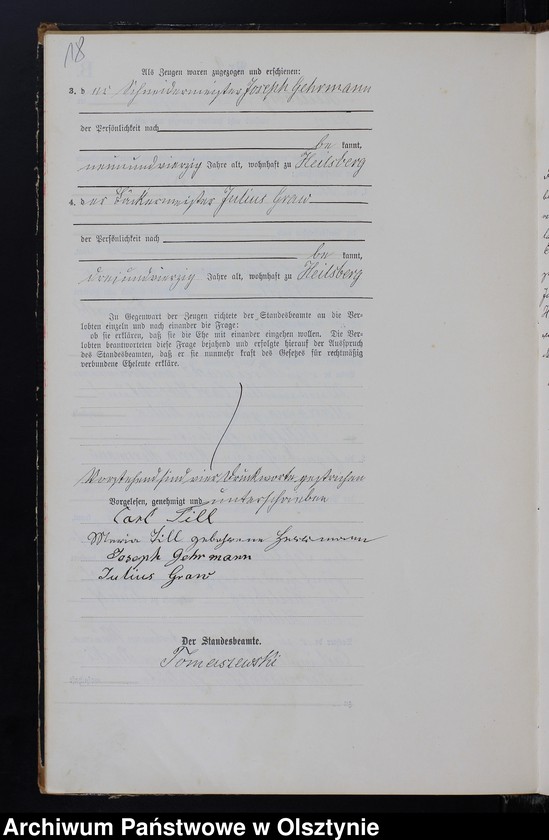 18
Als Zeugen waren zugezogen und erschienen:
3. der Schneidermeister Joseph Gehrmann
der Persönlichkeit nach
be kannt,
neunundvierzig Jahre alt, wohnhaft zu Heilsberg
4. der Bäckermeister Julius Graw
der Persönlichkeit nach
be kannt,
dreiundvierzig Jahre alt, wohnhaft zu Heilsberg
In Gegenwart der Zeugen richtete der Standesbeamte an die Ver-
lobten einzeln und nach einander die Frage:
ob sie erklären, daß sie die Ehe mit einander eingehen wollen. Die Ver-
lobten beantworteten diese Frage bejahend und erfolgte hierauf der Ausspruch
des Standesbeamten, daß er sie nunmehr kraft des Gesetzes für rechtmäßig
verbundene Eheleute erkläre.
Vorstehend sind vier Druckworte gestrichen
Vorgelesen, genehmigt und unterschrieben
Carl Till
Maria Till geborene Herrmann
Joseph Gehrmann
Julius Graw
Der Standesbeamte.
Tomaszewski
Archiwum Państwowe w Olsztynie